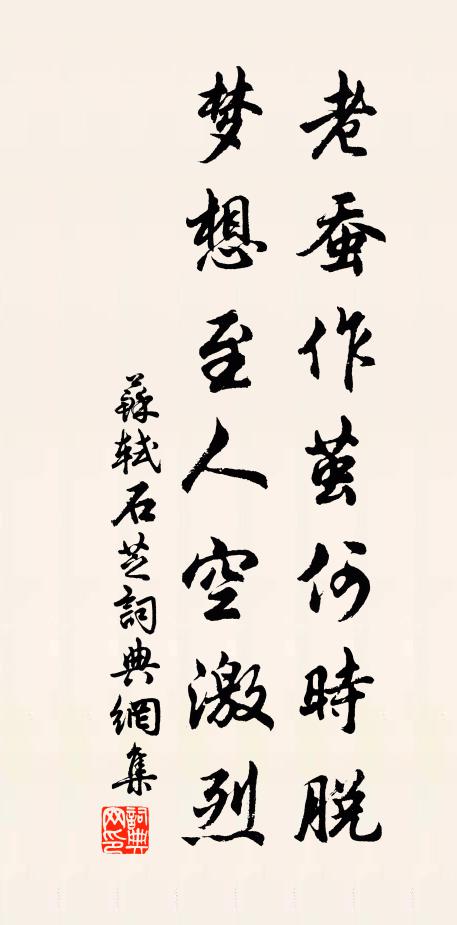 老蚕作茧何時脱
梦想至人空激烈
蘇軾石芝詞典網集
詞典網印